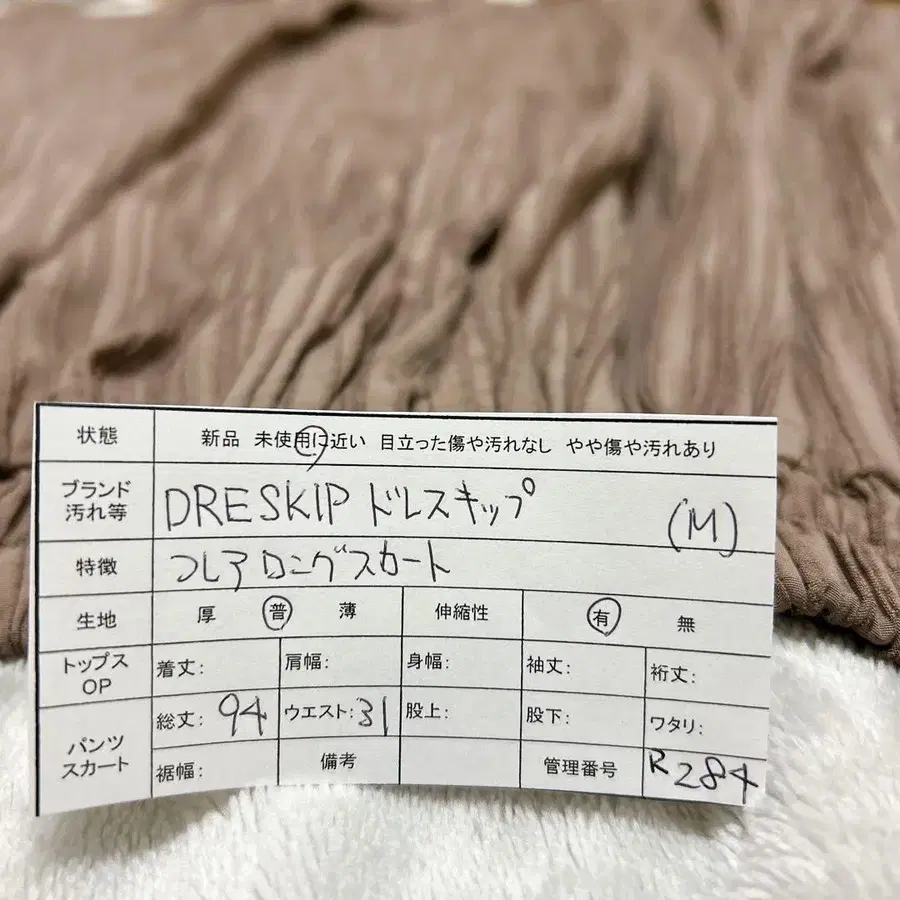 状態 新品 未使用に近い 目立った傷や汚れなし やや傷や汚れあり
ブランド
汚れ等 DRESKIP ドレスキップ (M)
特徴 フレアロングスカート
生地 厚 普 薄 伸縮性 有 無
トップス
OP 着丈: 肩幅: 身幅: 袖丈: 裄丈:
パンツ
スカート 総丈: 94 ウエスト: 31 股上: 股下: ワタリ:
裾幅: 備考 管理番号 R284